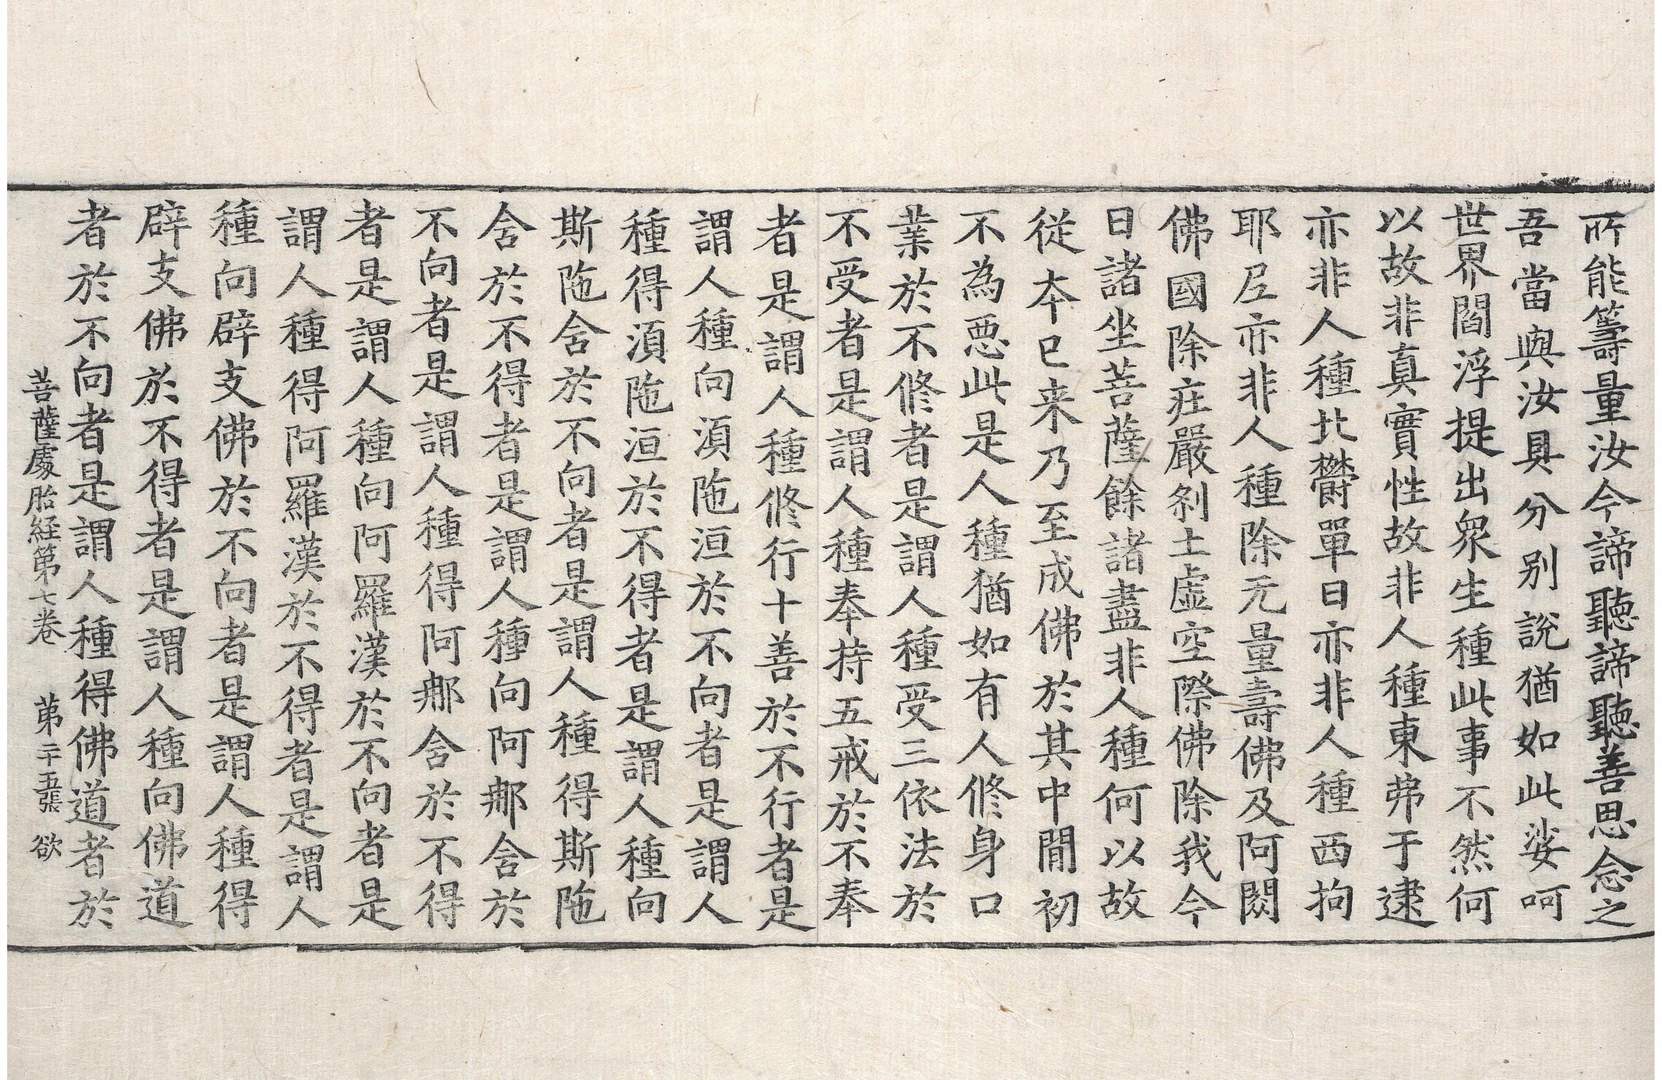 所能籌量汝今諦聽諦聽善思念之
吾當與汝具分別說猶如此娑呵
世界閻浮提出眾生種此事不然何
以故非真實性故非人種東弗于逮
亦非人種北欝單曰亦非人種西拘
耶尼亦非人種除无量壽佛及阿閦
佛國除莊嚴剎土虛空際佛除我今
日諸坐菩薩餘諸盡非人種何以故
從本已来乃至成佛於其中閒初
不為惡此是人種猶如有人修身口
業於不修者是謂人種受三依法於
不受者是謂人種奉持五戒於不奉
者是謂人種修行十善於不行者是
謂人種向湏陁洹於不向者是謂人
種得湏陁洹於不得者是謂人種向
斯陁舍於不向者是謂人種得斯陁
舍於不得者是謂人種向阿郍舍於
不向者是謂人種得阿郍舍於不得
者是謂人種向阿羅漢於不向者是
謂人種得阿羅漢於不得者是謂人
種向辟支佛於不向者是謂人種得
辟支佛於不得者是謂人種向佛道
者於不向者是謂人種得佛道者於
菩薩處胎経第七卷 第二十五張 欲